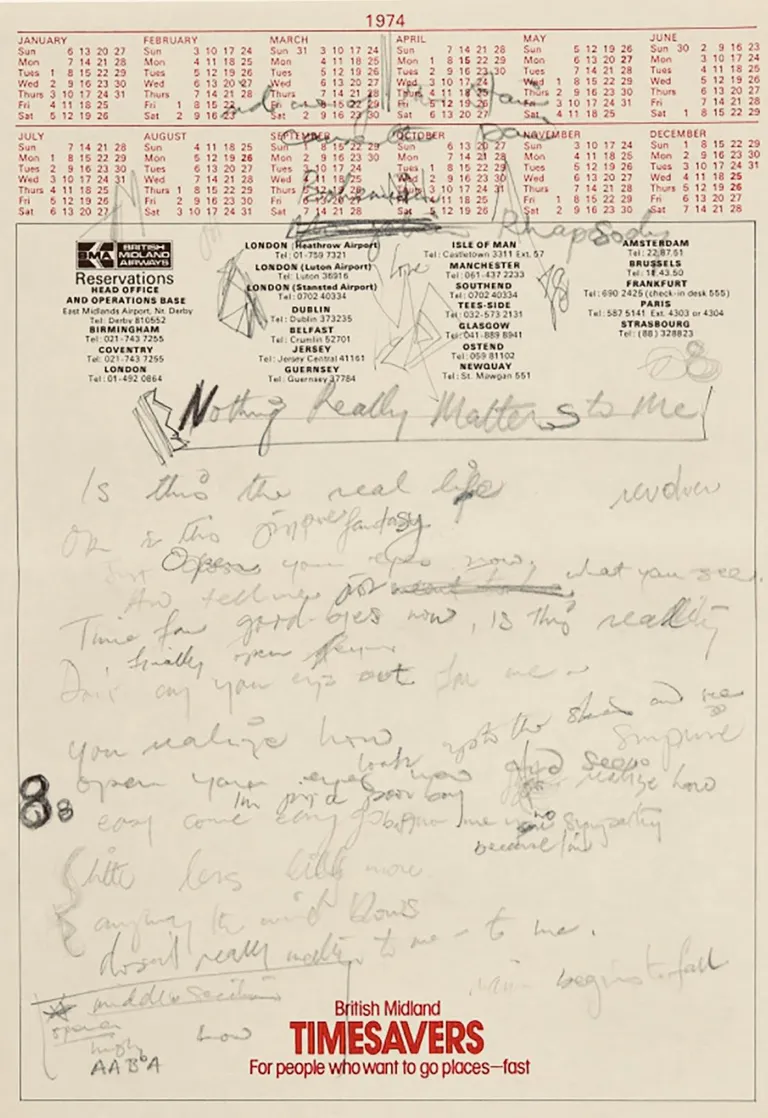 1974
JANUARY
Sun 6 13 20 27
Mon 7 14 21 28
Tues 1 8 15 22 29
Wed 2 9 16 23 30
Thurs 3 10 17 24 31
Fri 4 11 18 25
Sat 5 12 19 26
FEBRUARY
Sun 3 10 17 24
Mon 4 11 18 25
Tues 5 12 19 26
Wed 6 13 20 27
Thurs 7 14 21 28
Fri 1 8 15 22
Sat 2 9 16 23
MARCH
Sun 31 3 10 17 24
Mon 4 11 18 25
Tues 5 12 19 26
Wed 6 13 20 27
Thurs 7 14 21 28
Fri 1 8 15 22 29
Sat 2 9 16 23 30
APRIL
Sun 7 14 21 28
Mon 1 8 15 22 29
Tues 2 9 16 23 30
Wed 3 10 17 24
Thurs 4 11 18 25
Fri 5 12 19 26
Sat 6 13 20 27
MAY
Sun 5 12 19 26
Mon 6 13 20 27
Tues 7 14 21 28
Wed 1 8 15 22 29
Thurs 2 9 16 23 30
Fri 3 10 17 24 31
Sat 4 11 18 25
JUNE
Sun 30 2 9 16 23
Mon 3 10 17 24
Tues 4 11 18 25
Wed 5 12 19 26
Thurs 6 13 20 27
Fri 7 14 21 28
Sat 1 8 15 22 29
JULY
Sun 7 14 21 28
Mon 1 8 15 22 29
Tues 2 9 16 23 30
Wed 3 10 17 24 31
Thurs 4 11 18 25
Fri 5 12 19 26
Sat 6 13 20 27
AUGUST
Sun 4 11 18 25
Mon 5 12 19 26
Tues 6 13 20 27
Wed 7 14 21 28
Thurs 1 8 15 22 29
Fri 2 9 16 23 30
Sat 3 10 17 24 31
SEPTEMBER
Sun 1 8 15 22 29
Mon 2 9 16 23 30
Tues 3 10 17 24
Wed 4 11 18 25
Thurs 5 12 19 26
Fri 6 13 20 27
Sat 7 14 21 28
OCTOBER
Sun 6 13 20 27
Mon 7 14 21 28
Tues 1 8 15 22 29
Wed 2 9 16 23 30
Thurs 3 10 17 24 31
Fri 4 11 18 25
Sat 5 12 19 26
NOVEMBER
Sun 3 10 17 24
Mon 4 11 18 25
Tues 5 12 19 26
Wed 6 13 20 27
Thurs 7 14 21 28
Fri 1 8 15 22 29
Sat 2 9 16 23 30
DECEMBER
Sun 1 8 15 22 29
Mon 2 9 16 23 30
Tues 3 10 17 24 31
Wed 4 11 18 25
Thurs 5 12 19 26
Fri 6 13 20 27
Sat 7 14 21 28
Bohemian
Rhapsody
BMA BRITISH MIDLAND AIRWAYS
Reservations
HEAD OFFICE
AND OPERATIONS BASE
East Midlands Airport, Nr. Derby
Tel: Derby 810552
BIRMINGHAM
Tel: 021-743 7255
COVENTRY
Tel: 021-743 7255
LONDON
Tel: 01-492 0864
LONDON (Heathrow Airport)
Tel: 01-759 7321
LONDON (Luton Airport)
Tel: Luton 36916
LONDON (Stansted Airport)
Tel: 0702 40334
DUBLIN
Tel: Dublin 373235
BELFAST
Tel: Crumlin 52701
JERSEY
Tel: Jersey Central 41161
GUERNSEY
Tel: Guernsey 37784
Love
ISLE OF MAN
Tel: Castletown 3311 Ext. 57
MANCHESTER
Tel: 061-437 2233
SOUTHEND
Tel: 0702 40334
TEES-SIDE
Tel: 032-573 2131
GLASGOW
Tel: 041-889 8941
OSTEND
Tel: 059 81102
NEWQUAY
Tel: St. Mawgan 551
AMSTERDAM
Tel: 22.87.51
BRUSSELS
Tel: 18.43.50
FRANKFURT
Tel: 690 2425 (check-in desk 555)
PARIS
Tel: 587 5141 Ext. 4303 or 4304
STRASBOURG
Tel: (88) 328823
Nothing Really Matters to Me
Is this the real life
Or is this just fantasy
Open your eyes now, what you see
And tell me
Time for good-byes now, is this reality
finally open
Don't cry your eyes out for me
look up to the skies and see
you realize how
open your eyes now and realize how
I'm just a poor boy
easy come easy go no sympathy
because I'm
little less little more
anyway the wind blows
doesn't really matter to me - to me.
begins to fall
middle section
how
AABA
8 8
British Midland
TIMESAVERS
For people who want to go places—fast